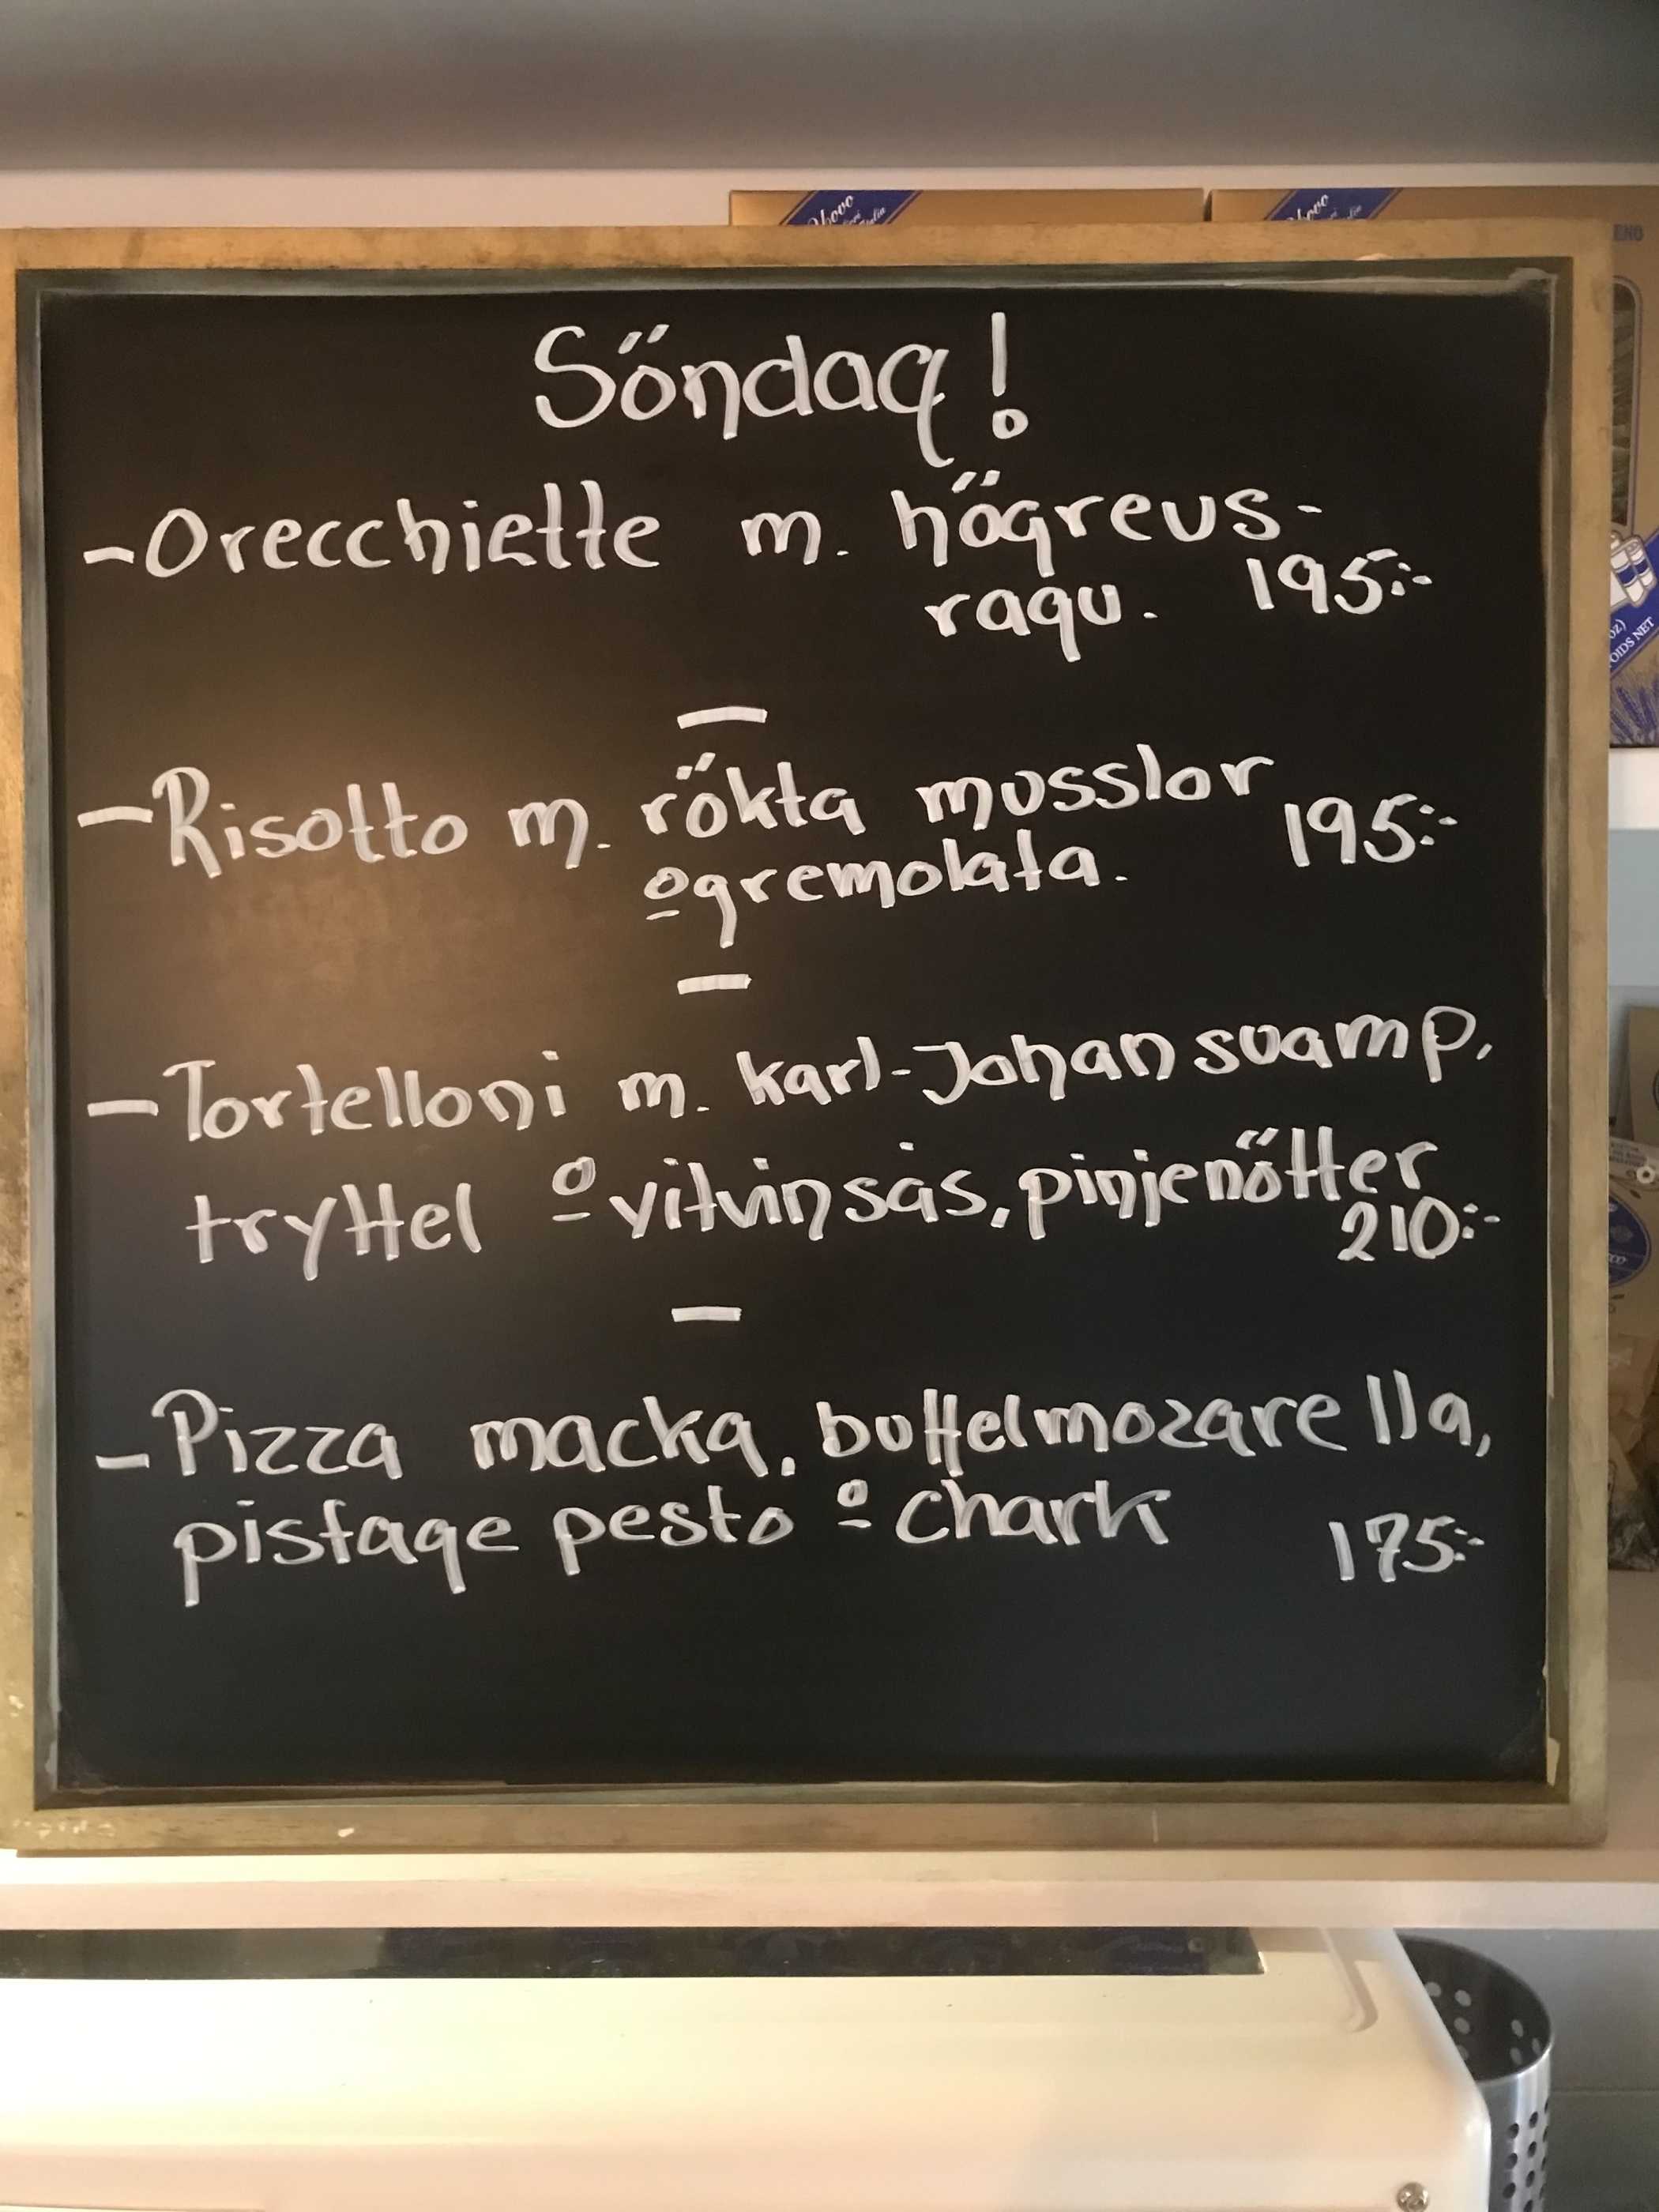 Söndag!
-Orecchiette m. högrevs-
ragu. 195:-
-Risotto m. rökta musslor
o gremolata. 195:-
-Tortelloni m. karl-Johan svamp,
tryffel o vitvinsås, pinjenötter
210:-
-Pizza macka, buffelmozarella,
pistage pesto o chark 175:-
ovo
ovo
OZ)
OIDS NET